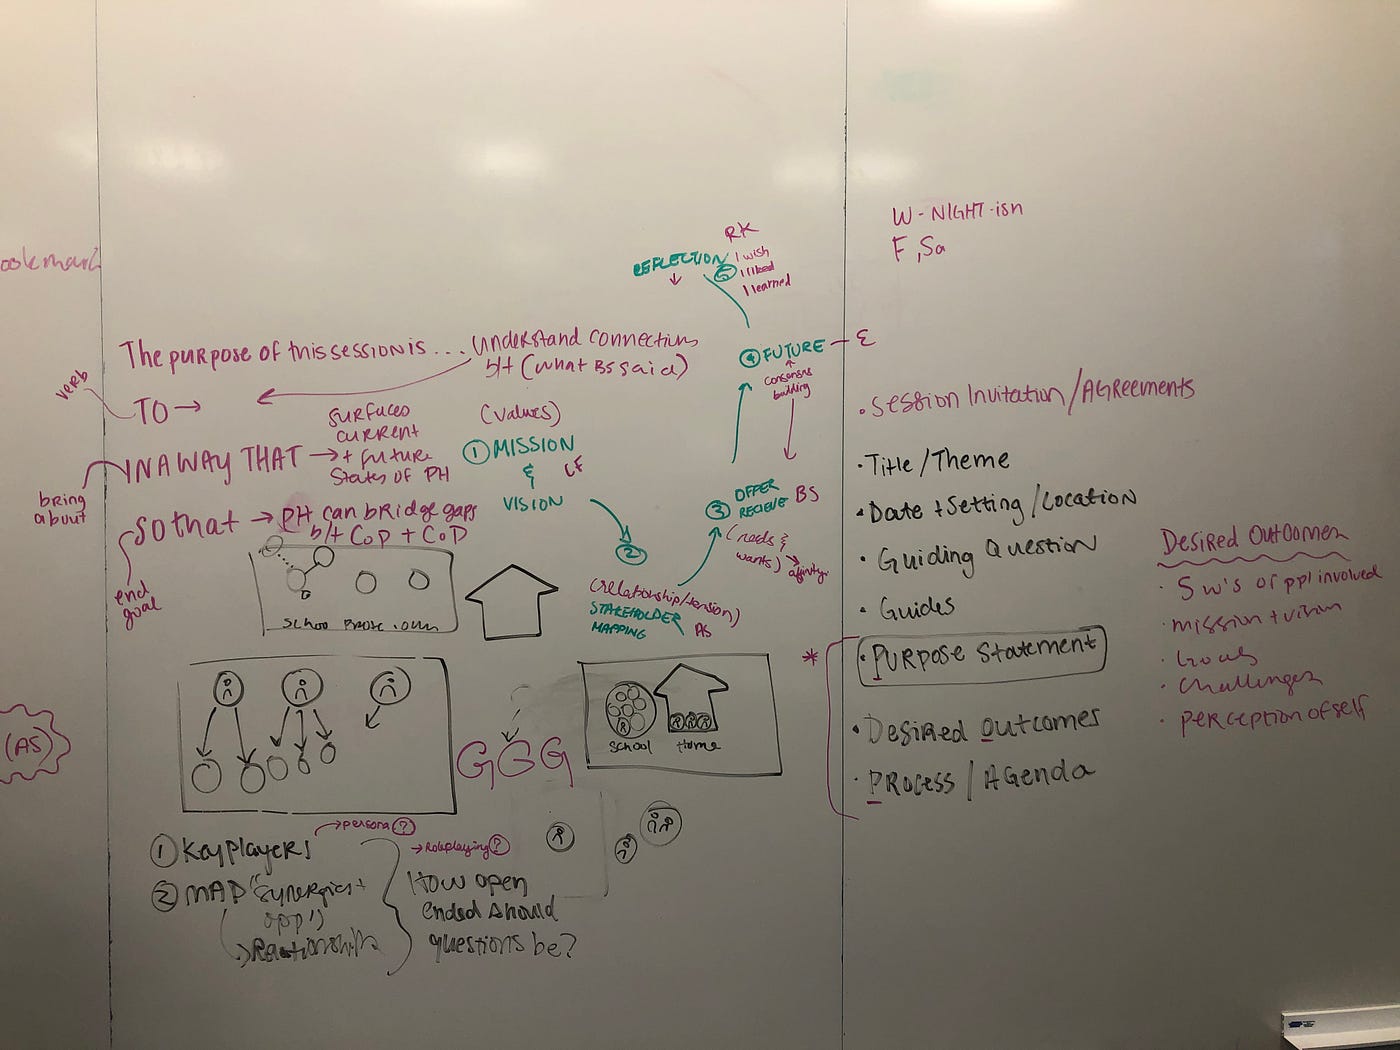 ookmark
(AS)
The purpose of this session is ...
understand connections
b/t (what BS said)
verb
TO →
IN A WAY THAT →
surfaces
current
+ future
states of PH
bring
about
SO that →
PH can bridge gaps
b/t CoP + CoP
end
goal
(values)
① MISSION
&
VISION
LE
②
(relationship/tension)
STAKEHOLDER
MAPPING
AS
③ OFFER
RECIEVE
BS
(needs &
wants)
affinity
④ FUTURE – E
consensus
building
REFLECTION
⑤
RK
I wish
I liked
I learned
School
Home
GGG
① Key players
→ persona?
② MAP "synergies +
opp's
→ Relationships
→ Roleplaying?
How open
ended should
questions be?
W - NIGHT - ish
F, Sa
• Session Invitation/AGREEMENTS
• Title/Theme
• Date + Setting/Location
• Guiding Question
• Guides
* • PURPOSE Statement
• Desired Outcomes
• PROCESS/AGENDA
Desired Outcomes
• 5 w's of ppl involved
• mission + vision
• Goals
• challenges
• perception of self